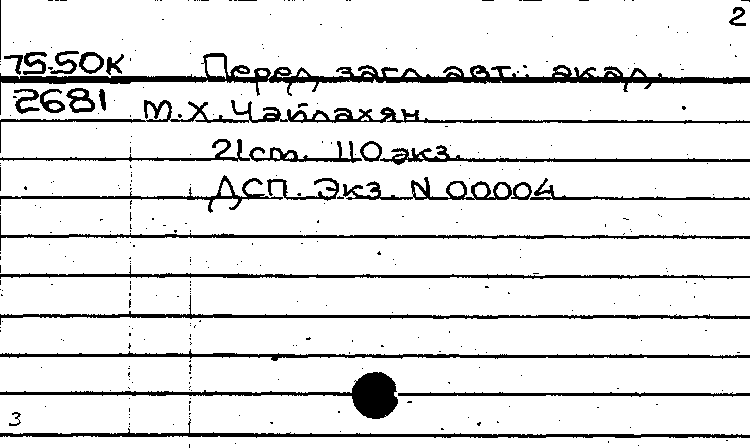 2
75-50К Перед загл. авт.: акад.
2681 М.Х. Чайлахян.
21 cm. 110 экз.
ДСП. Экз. N 00004.
3